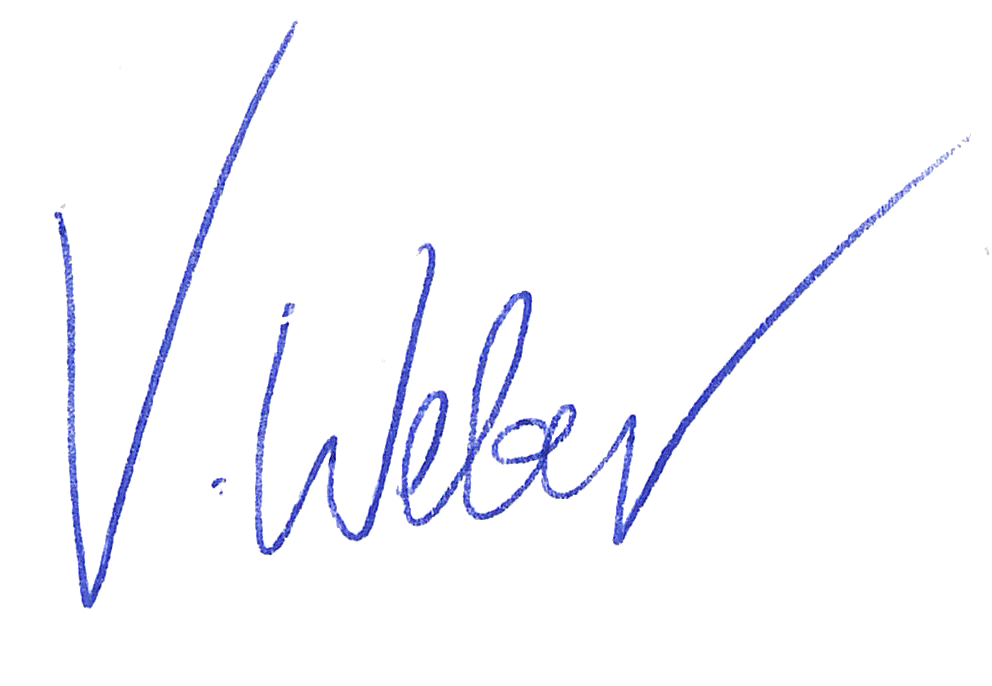 V. Weber